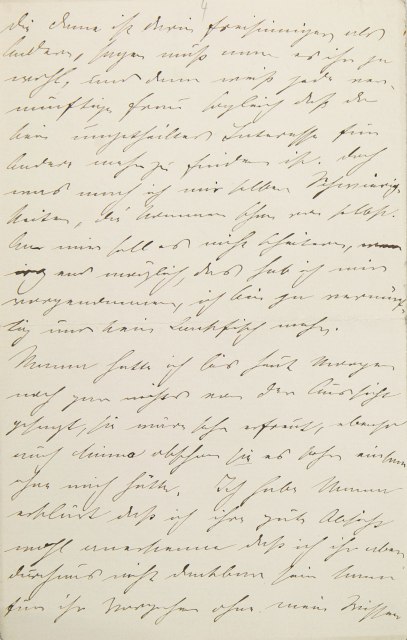 4
die denn ist darin freisinniger als
Andere, sagen muß man es ihr ja
wohl, und dann weiß jede ver-
nünftige Frau sogleich daß da
kein ungetheiltes Interesse für
Andere mehr zu finden ist. Doch
was mach ich mir selber Schwierig-
keiten, die kommen schon von selbst.
An mir soll es nicht scheitern,
und möglich, das hab ich mir
vorgenommen, ich bin zu vernünf-
tig und kein mehr.
Mama hatte ich bis heut Morgen
noch gar nichts von der Aussicht
gesagt, sie war sehr erfreut, ebenso
auch Anna obschon sie es schon
ohne mich hätte. Ich habe Mama
erklärt daß ich ihre gute Absicht
wohl anerkenne daß ich ihr aber
durchaus nicht dankbar sein kann
für ihr Vorgehen ohne mein Wissen